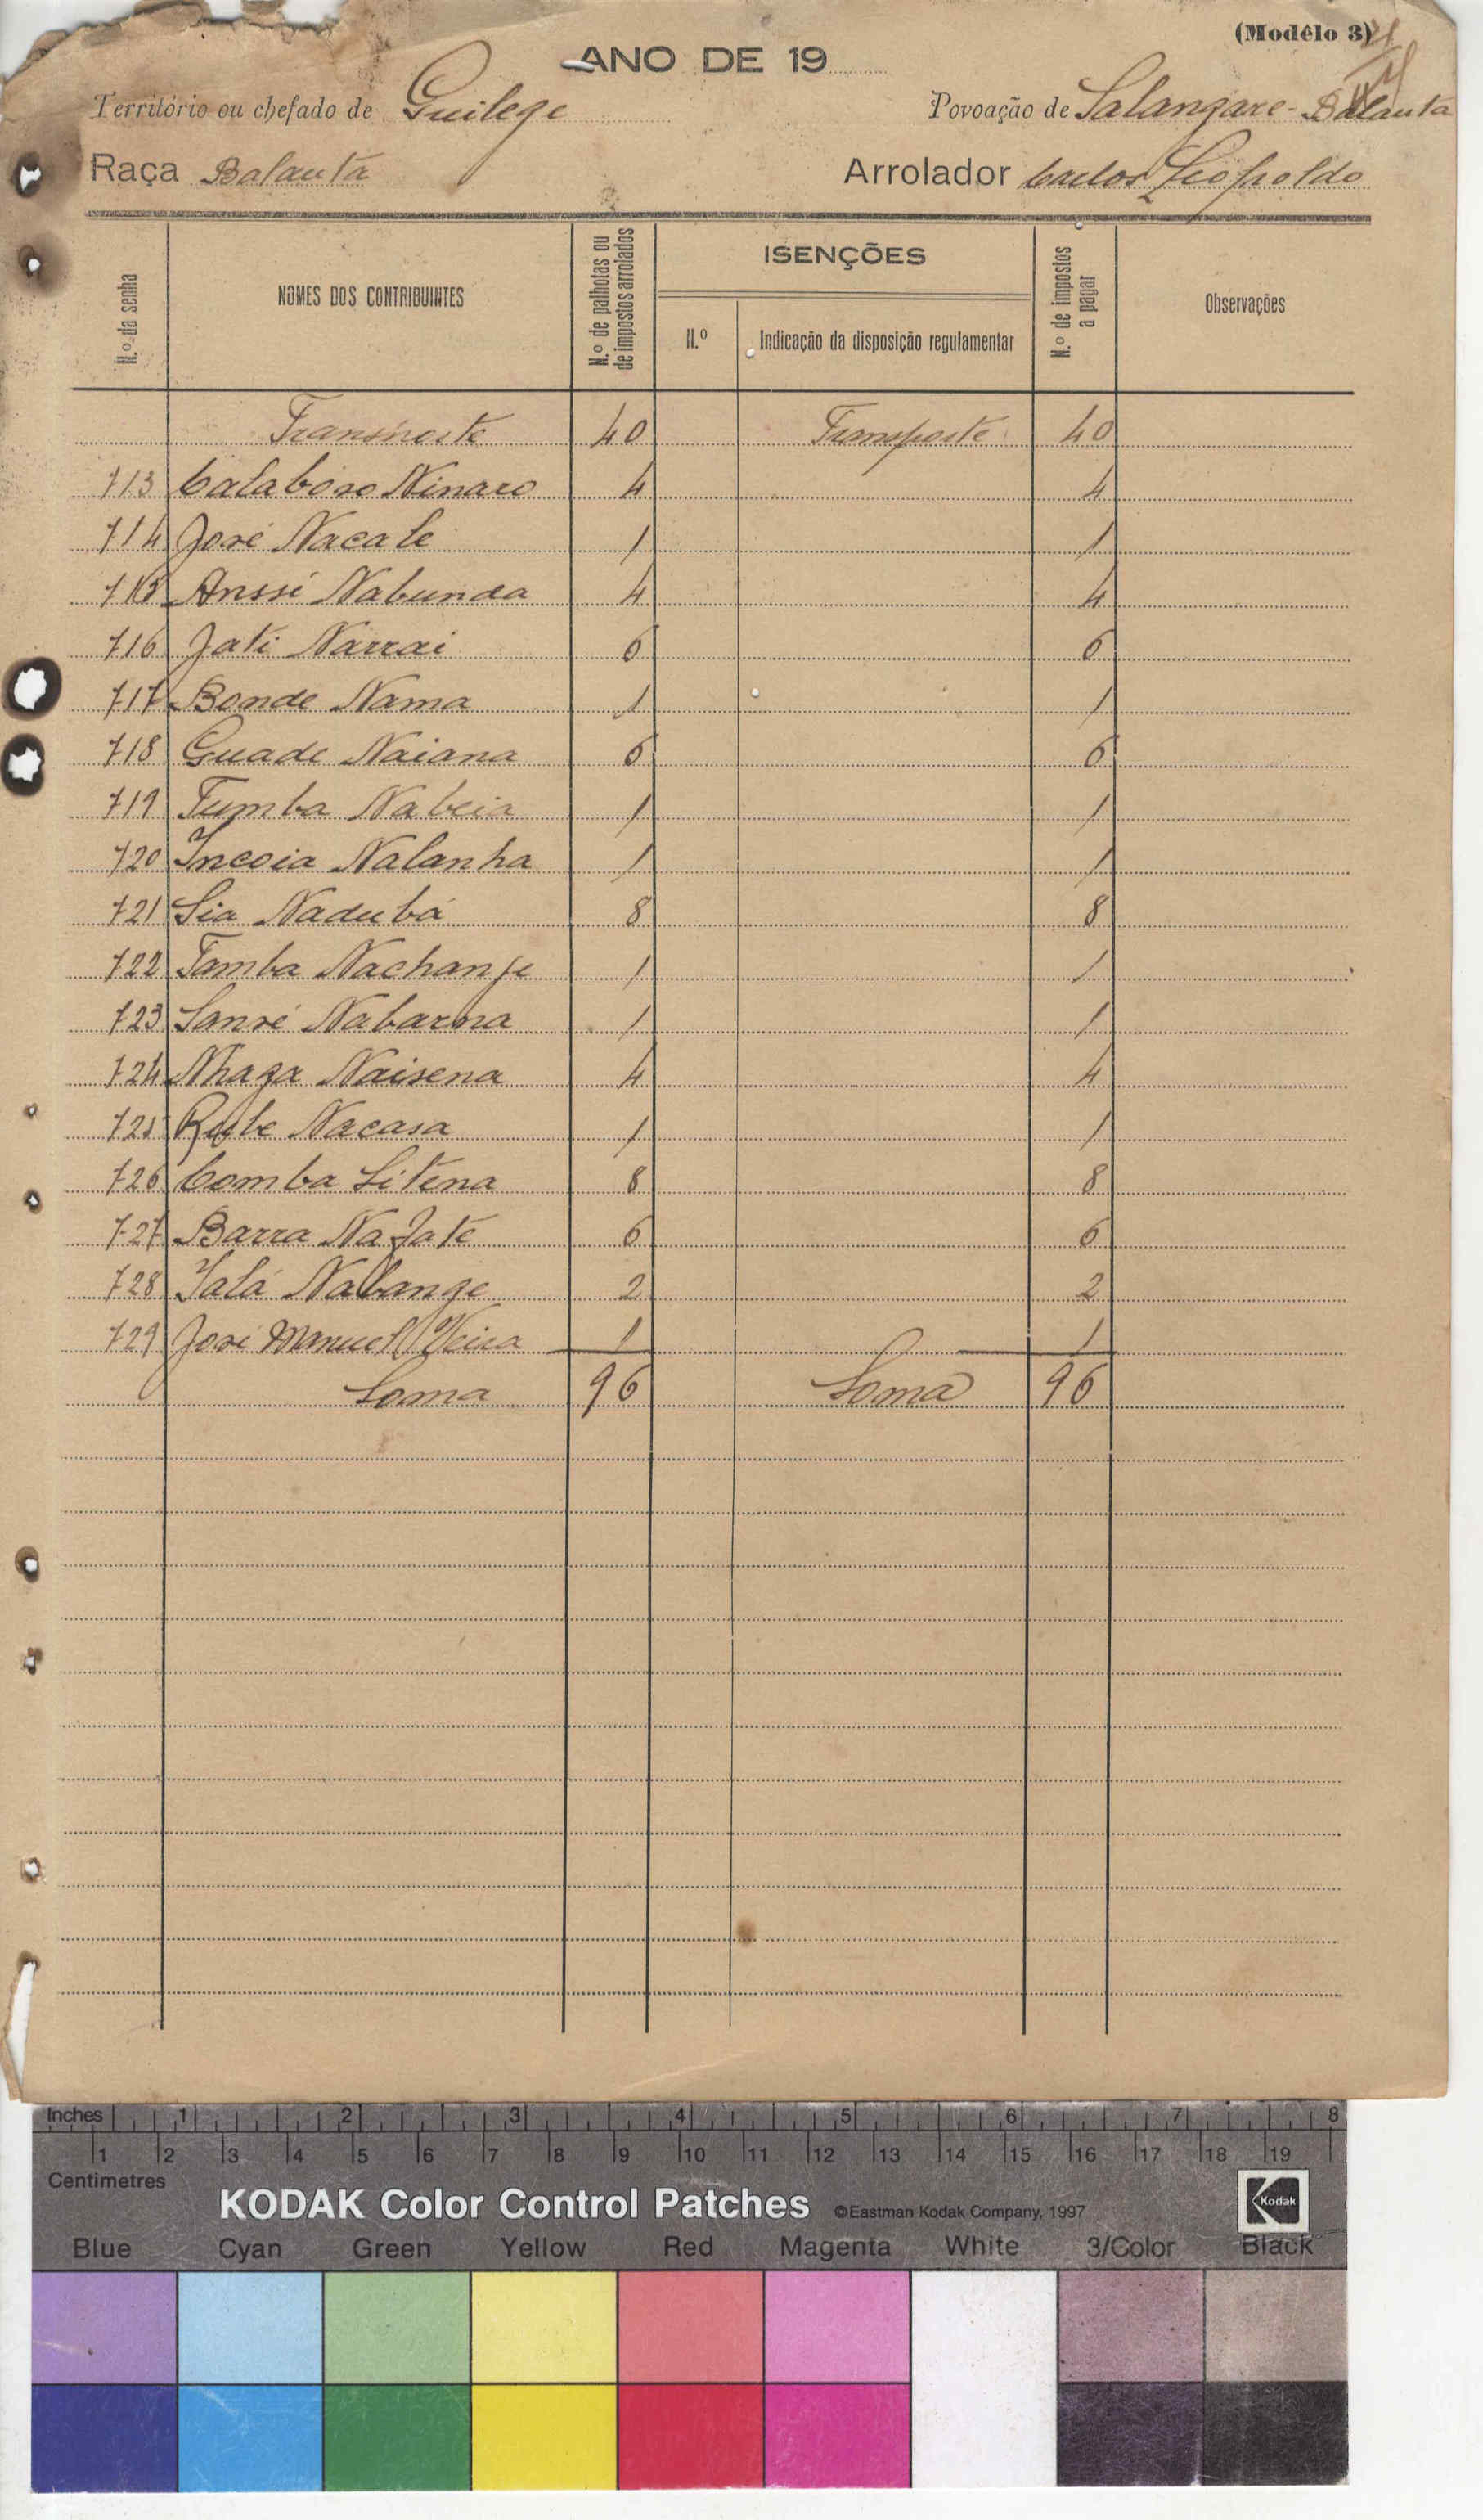 (Modêlo 3)
ANO DE 19
Território ou chefado de Guilege
Povoação de Salangare - Balanta
Raça Balanta
Arrolador Carlos Leopoldo
N.º da senha
NOMES DOS CONTRIBUINTES
N.º de palhotas ou de impostos arrolados
ISENÇÕES
N.º
Indicação da disposição regulamentar
N.º de impostos a pagar
Observações
Transporte 40 Transporte 40
713 Calaboso Ninaro 4 4
714 José Nacale 1 1
715 Anssi Nabunda 4 4
716 Jati Narrai 6 6
717 Bonde Nama 1 1
718 Guade Naiana 6 6
719 Tumba Nabeia 1 1
720 Incoia Nalanha 1 1
721 Sia Nadubá 8 8
722 Tamba Nachange 1 1
723 Sansé Nabarna 1 1
724 Nhaga Naisena 4 4
725 Nacasa 1 1
726 Comba Sitena 8 8
727 Barra Na Jaté 6 6
728 Ialá Nabange 2 2
729 José Manuel Vieira 1 1
Soma 96 Soma 96
Inches 1 2 3 4 5 6 7 8
1 2 3 4 5 6 7 8 9 10 11 12 13 14 15 16 17 18 19
Centimetres
KODAK Color Control Patches ©Eastman Kodak Company, 1997 Kodak
Blue Cyan Green Yellow Red Magenta White 3/Color Black